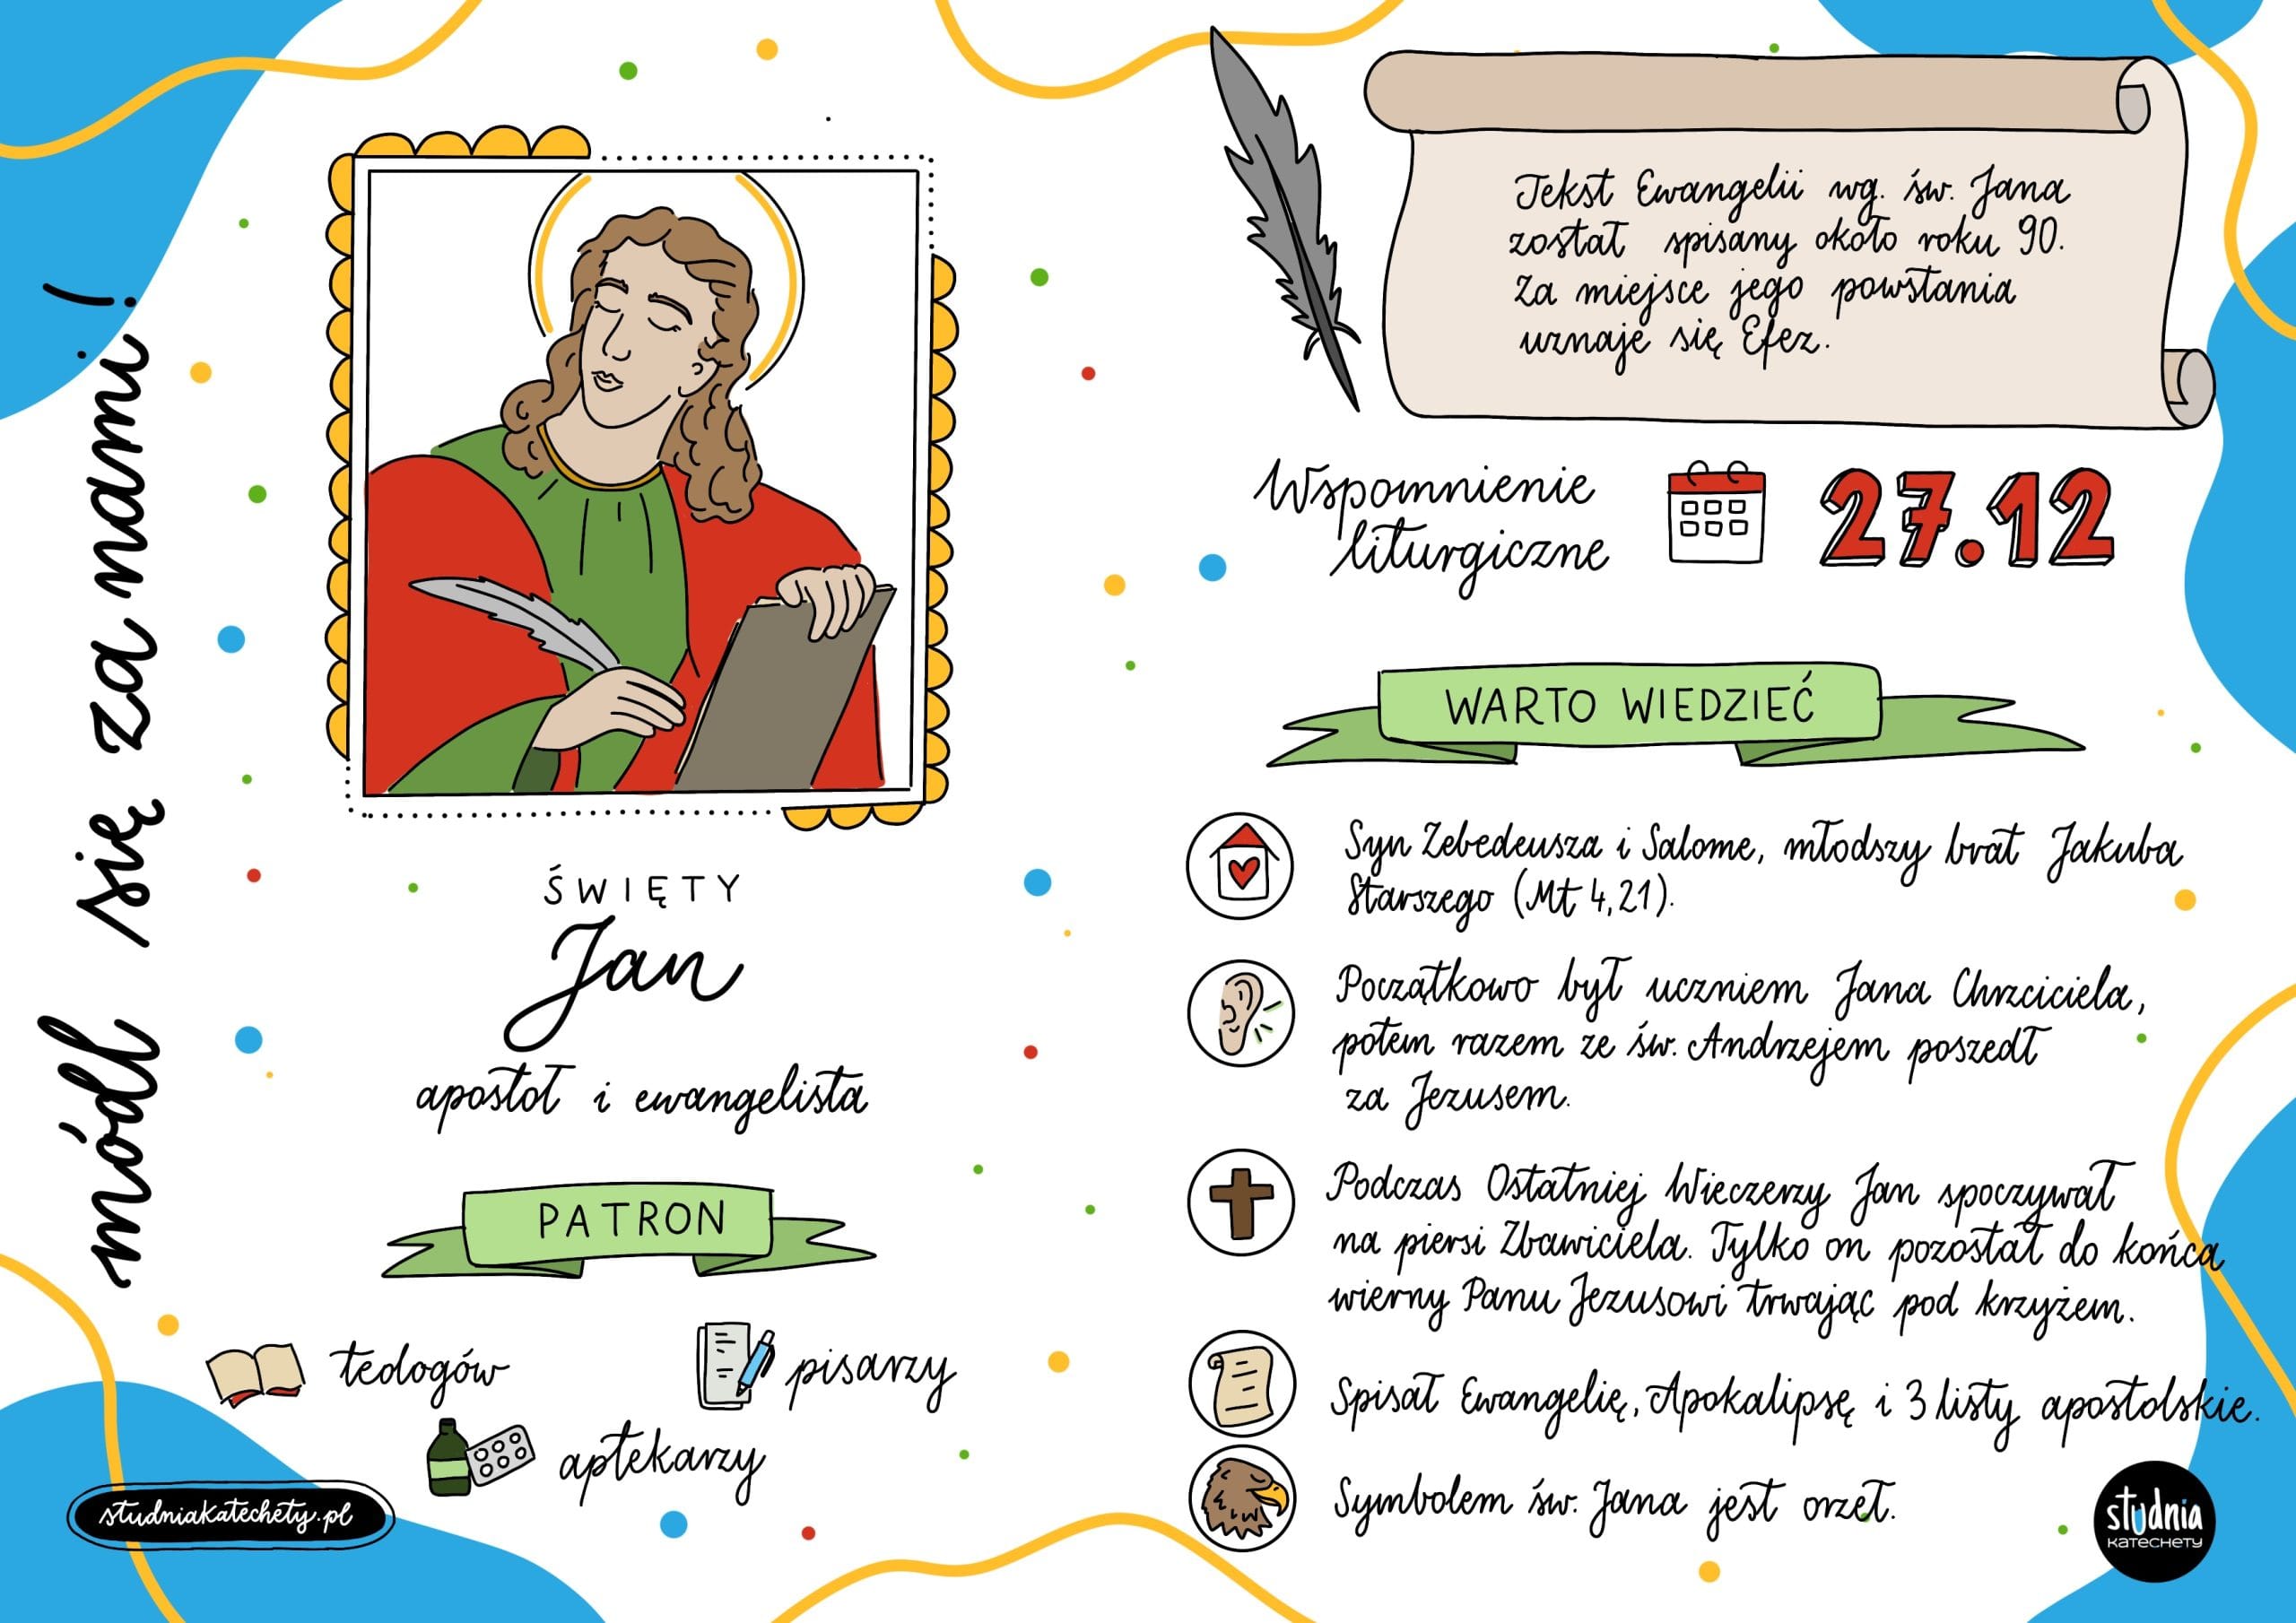 módl się za nami!
ŚWIĘTY
Jan
apostoł i ewangelista
PATRON
teologów
pisarzy
aptekarzy
studniakatechety.pl
Tekst Ewangelii wg. św. Jana
został spisany około roku 90.
Za miejsce jego powstania
uznaje się Efez.
Wspomnienie
liturgiczne
27.12
WARTO WIEDZIEĆ
Syn Zebedeusza i Salome, młodszy brat Jakuba
Starszego (Mt 4,21).
Początkowo był uczniem Jana Chrzciciela,
potem razem ze św. Andrzejem poszedł
za Jezusem.
Podczas Ostatniej Wieczerzy Jan spoczywał
na piersi Zbawiciela. Tylko on pozostał do końca
wierny Panu Jezusowi trwając pod krzyżem.
Spisał Ewangelię, Apokalipsę i 3 listy apostolskie.
Symbolem św. Jana jest orzeł.
studnia
KATECHETY